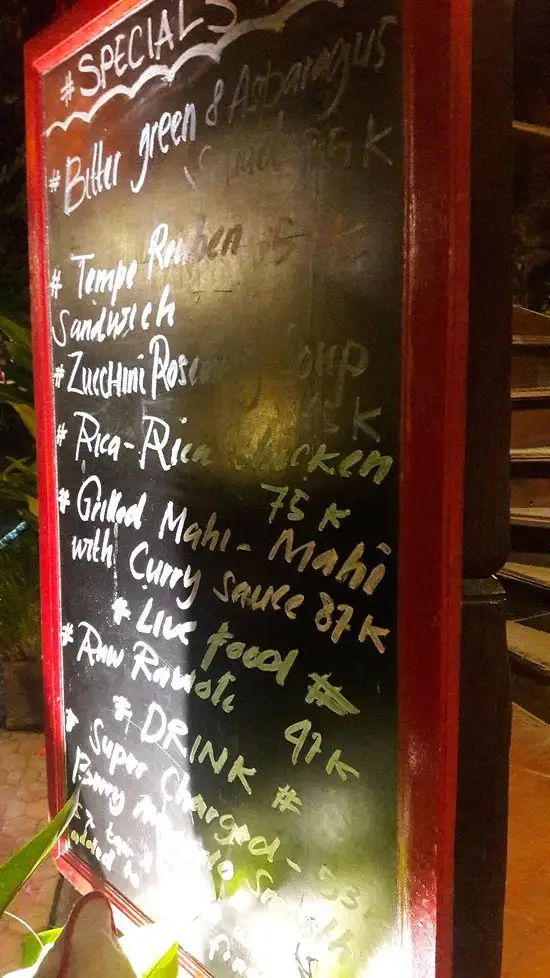 # SPECIALS
# Bitter green & Asparagus
K
# Tempe Reuben
Sandwich
# Zucchini Rosemary Soup
K
# Rica-Rica Chicken
75 K
# Grilled Mahi-Mahi
with Curry Sauce 87K
# Live food #
# Raw Ravioli
47K
# DRINK #
# Super Charged-
Berry
added